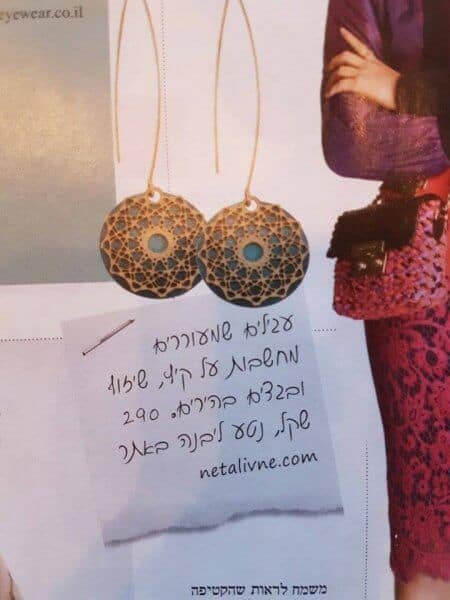 eyewear.co.il
עגילים שמעוררים
מחשבות על קיץ, שיזוף
ובגדים בהירים. 290
שקל, נטע ליבנה באתר
netalivne.com
משמח לראות שהקטיפה